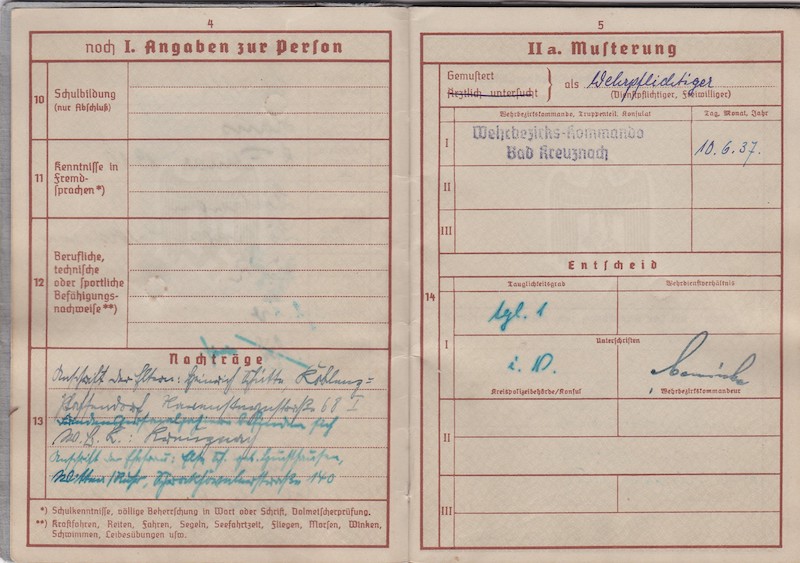 4
noch I. Angaben zur Person
10
Schulbildung
(nur Abschluß)
11
Kenntnisse in
Fremd-
sprachen*)
12
Berufliche,
technische
oder sportliche
Befähigungs-
nachweise**)
Nachträge
13
Anschrift der Eltern: Heinrich Schitte Koblenz=
Pfaffendorf, 68 I
befinden sich
W.B.K.: Kreuznach
Anschrift der Ehefrau: geb.
Witten/Ruhr, 140
*) Schulkenntnisse, völlige Beherrschung in Wort oder Schrift, Dolmetscherprüfung.
**) Kraftfahren, Reiten, Fahren, Segeln, Seefahrtzeit, Fliegen, Morsen, Winken,
Schwimmen, Leibesübungen usw.
5
IIa. Musterung
Gemustert
Ärztlich untersucht
als Wehrpflichtiger
(Dienstpflichtiger, Freiwilliger)
Wehrbezirkskommando, Truppenteil, Konsulat
Tag, Monat, Jahr
I
Wehrbezirks-Kommando
Bad Kreuznach
10.6.37.
II
III
Entscheid
14
Tauglichkeitsgrad
Wehrdienstverhältnis
I
tgl. 1
Unterschriften
i. V.
Kreispolizeibehörde/Konsul
Wehrbezirkskommandeur
II
III